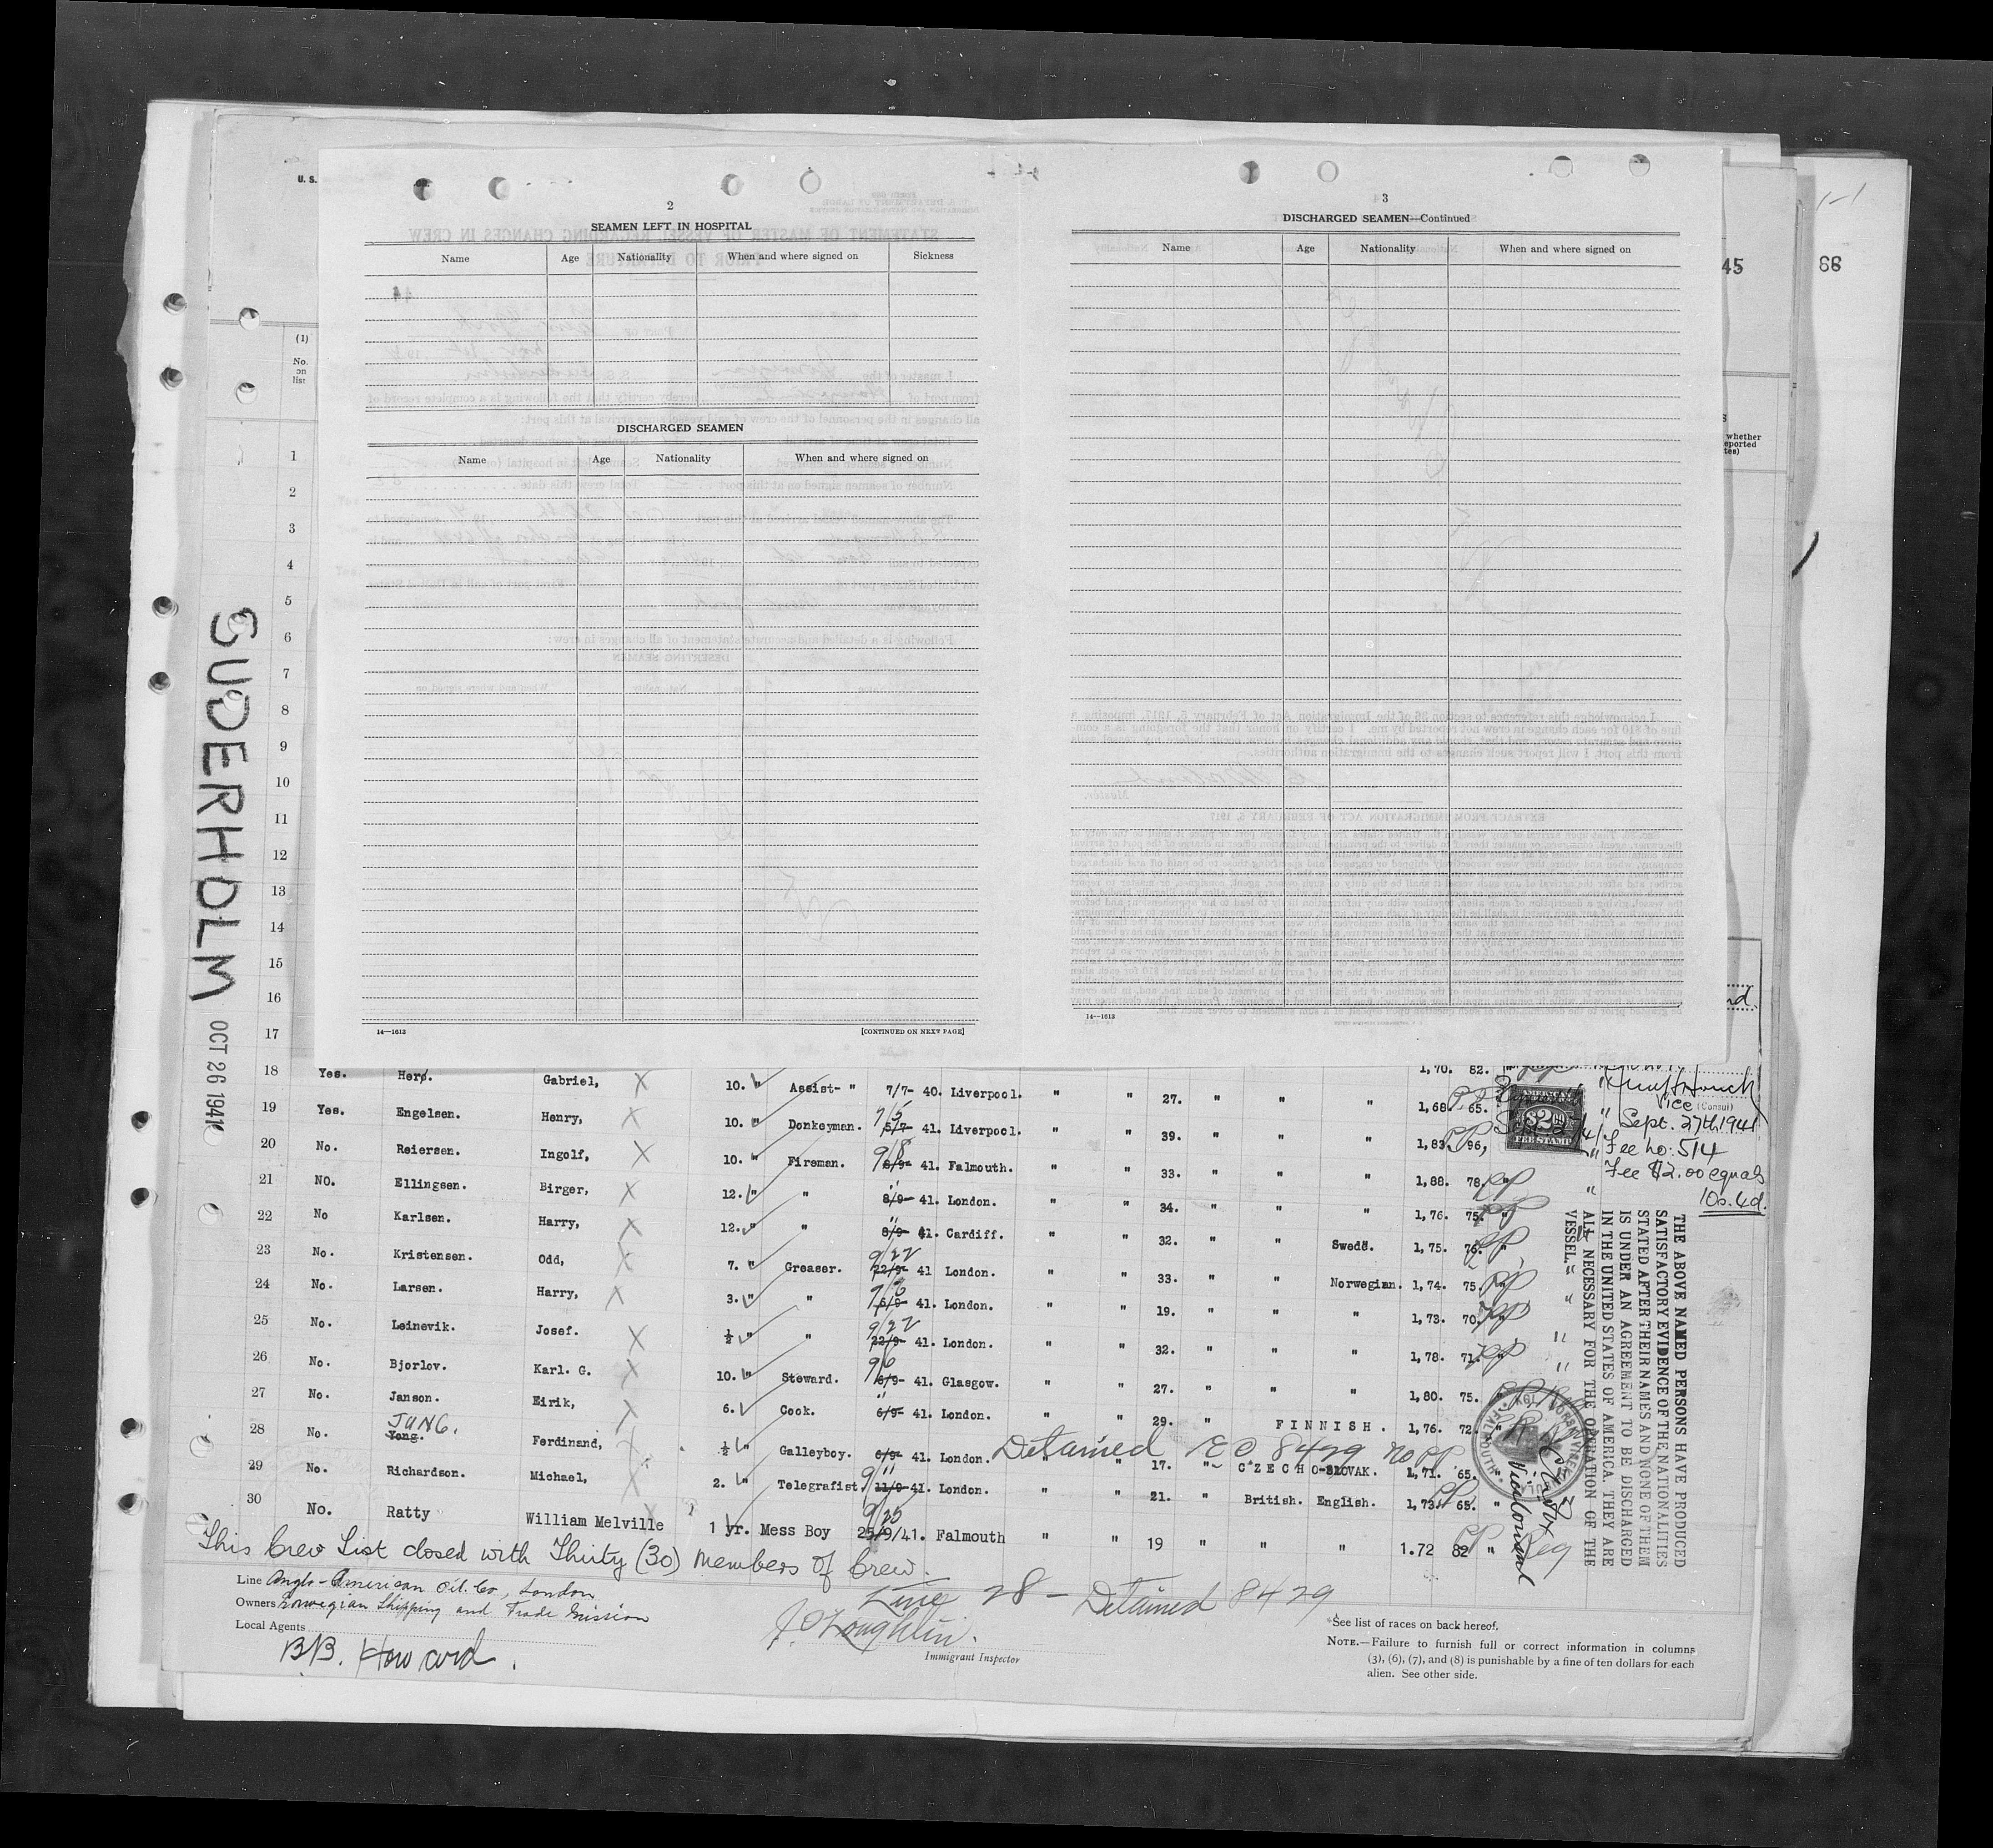 U. S.
2
SEAMEN LEFT IN HOSPITAL
Name Age Nationality When and where signed on Sickness
DISCHARGED SEAMEN
Name Age Nationality When and where signed on
14—1613 [CONTINUED ON NEXT PAGE]
3
DISCHARGED SEAMEN—Continued
Name Age Nationality When and where signed on
14—1613
45
68
whether
nd.
(1)
No.
on
list
1
2
3
4
5
6
7
8
9
10
11
12
13
14
15
16
17
SUDERHOLM
OCT 26 1941
18 Yes. Herø. Gabriel, X 10. " Assist- " 7/7- 40. Liverpool. " " 27. " " " 1,70. 82. "
19 Yes. Engelsen. Henry, X 10. " Donkeyman. 7/5 5/7- 41. Liverpool. " " 39. " " " 1,68. 65. "
20 No. Reiersen. Ingolf, X 10. " Fireman. 9/8 8/9- 41. Falmouth. " " 33. " " " 1,83. PP 96, "
21 NO. Ellingsen. Birger, X 12. " " " 8/9- 41. London. " " 34. " " " 1,88. 78. PP "
22 No Karlsen. Harry, X 12. " " " 8/9- 41. Cardiff. " " 32. " " Swede. 1,76. 75. PP
23 No. Kristensen. Odd, X 7. " Greaser. 9/22 22/9- 41 London. " " 33. " " Norwegian. 1,75. 76. PP
24 No. Larsen. Harry, X 3. " " 9/6 6/9- 41. London. " " 19. " " " 1,74. 75. PP "
25 No. Leinevik. Josef. X ½ " " 9/22 22/9- 41. London. " " 32. " " " 1,73. 70. PP "
26 No. Bjorlov. Karl. G. X 10. " Steward. 9/6 6/9- 41. Glasgow. " " 27. " " " 1,78. 71. PP "
27 No. Janson. Eirik, X 6. " Cook. " 6/9- 41. London. " " 29. " FINNISH. 1,80. 75.
JUNG.
28 No. Yong. Ferdinand, X ½ " Galleyboy. 6/9- 41. London. " " 17. " CZECHO-SLOVAK. 1,76. 72.
Detained EO 8429 no PP
29 No. Richardson. Michael, X 2. " Telegrafist. 9/11 11/9-41. London. " " 21. " British. English. 1,71. 65. "
30 No. Ratty William Melville X 1 yr. Mess Boy 9/25 25/9/41. Falmouth " " 19 " " " 1,73. PP 65. "
1.72 82 PP "
This Crew List closed with Thirty (30) members of Crew.
Line 28 — Detained 8429
Line Anglo-American Oil. Co., London
Owners Norwegian Shipping and Trade Mission
Local Agents
B.B. Howard.
J. O'Loughlin.
Immigrant Inspector
*See list of races on back hereof.
NOTE.—Failure to furnish full or correct information in columns
(3), (6), (7), and (8) is punishable by a fine of ten dollars for each
alien. See other side.
AMERICAN
$2.00
FEE STAMP
Vice (Consul)
Sept. 27th 1941
Fee no: 514
Fee $2.00 equals
10s. 4d.
THE ABOVE NAMED PERSONS HAVE PRODUCED
SATISFACTORY EVIDENCE OF THE NATIONALITIES
STATED AFTER THEIR NAMES AND NONE OF THEM
IS UNDER AN AGREEMENT TO BE DISCHARGED
IN THE UNITED STATES OF AMERICA. THEY ARE
ALL NECESSARY FOR THE OPERATION OF THE
VESSEL.